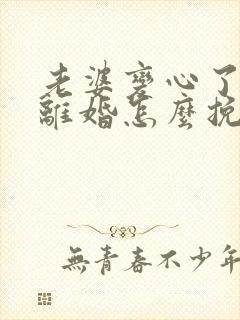 老婆變心了
離婚怎麼挽
無青春不少年